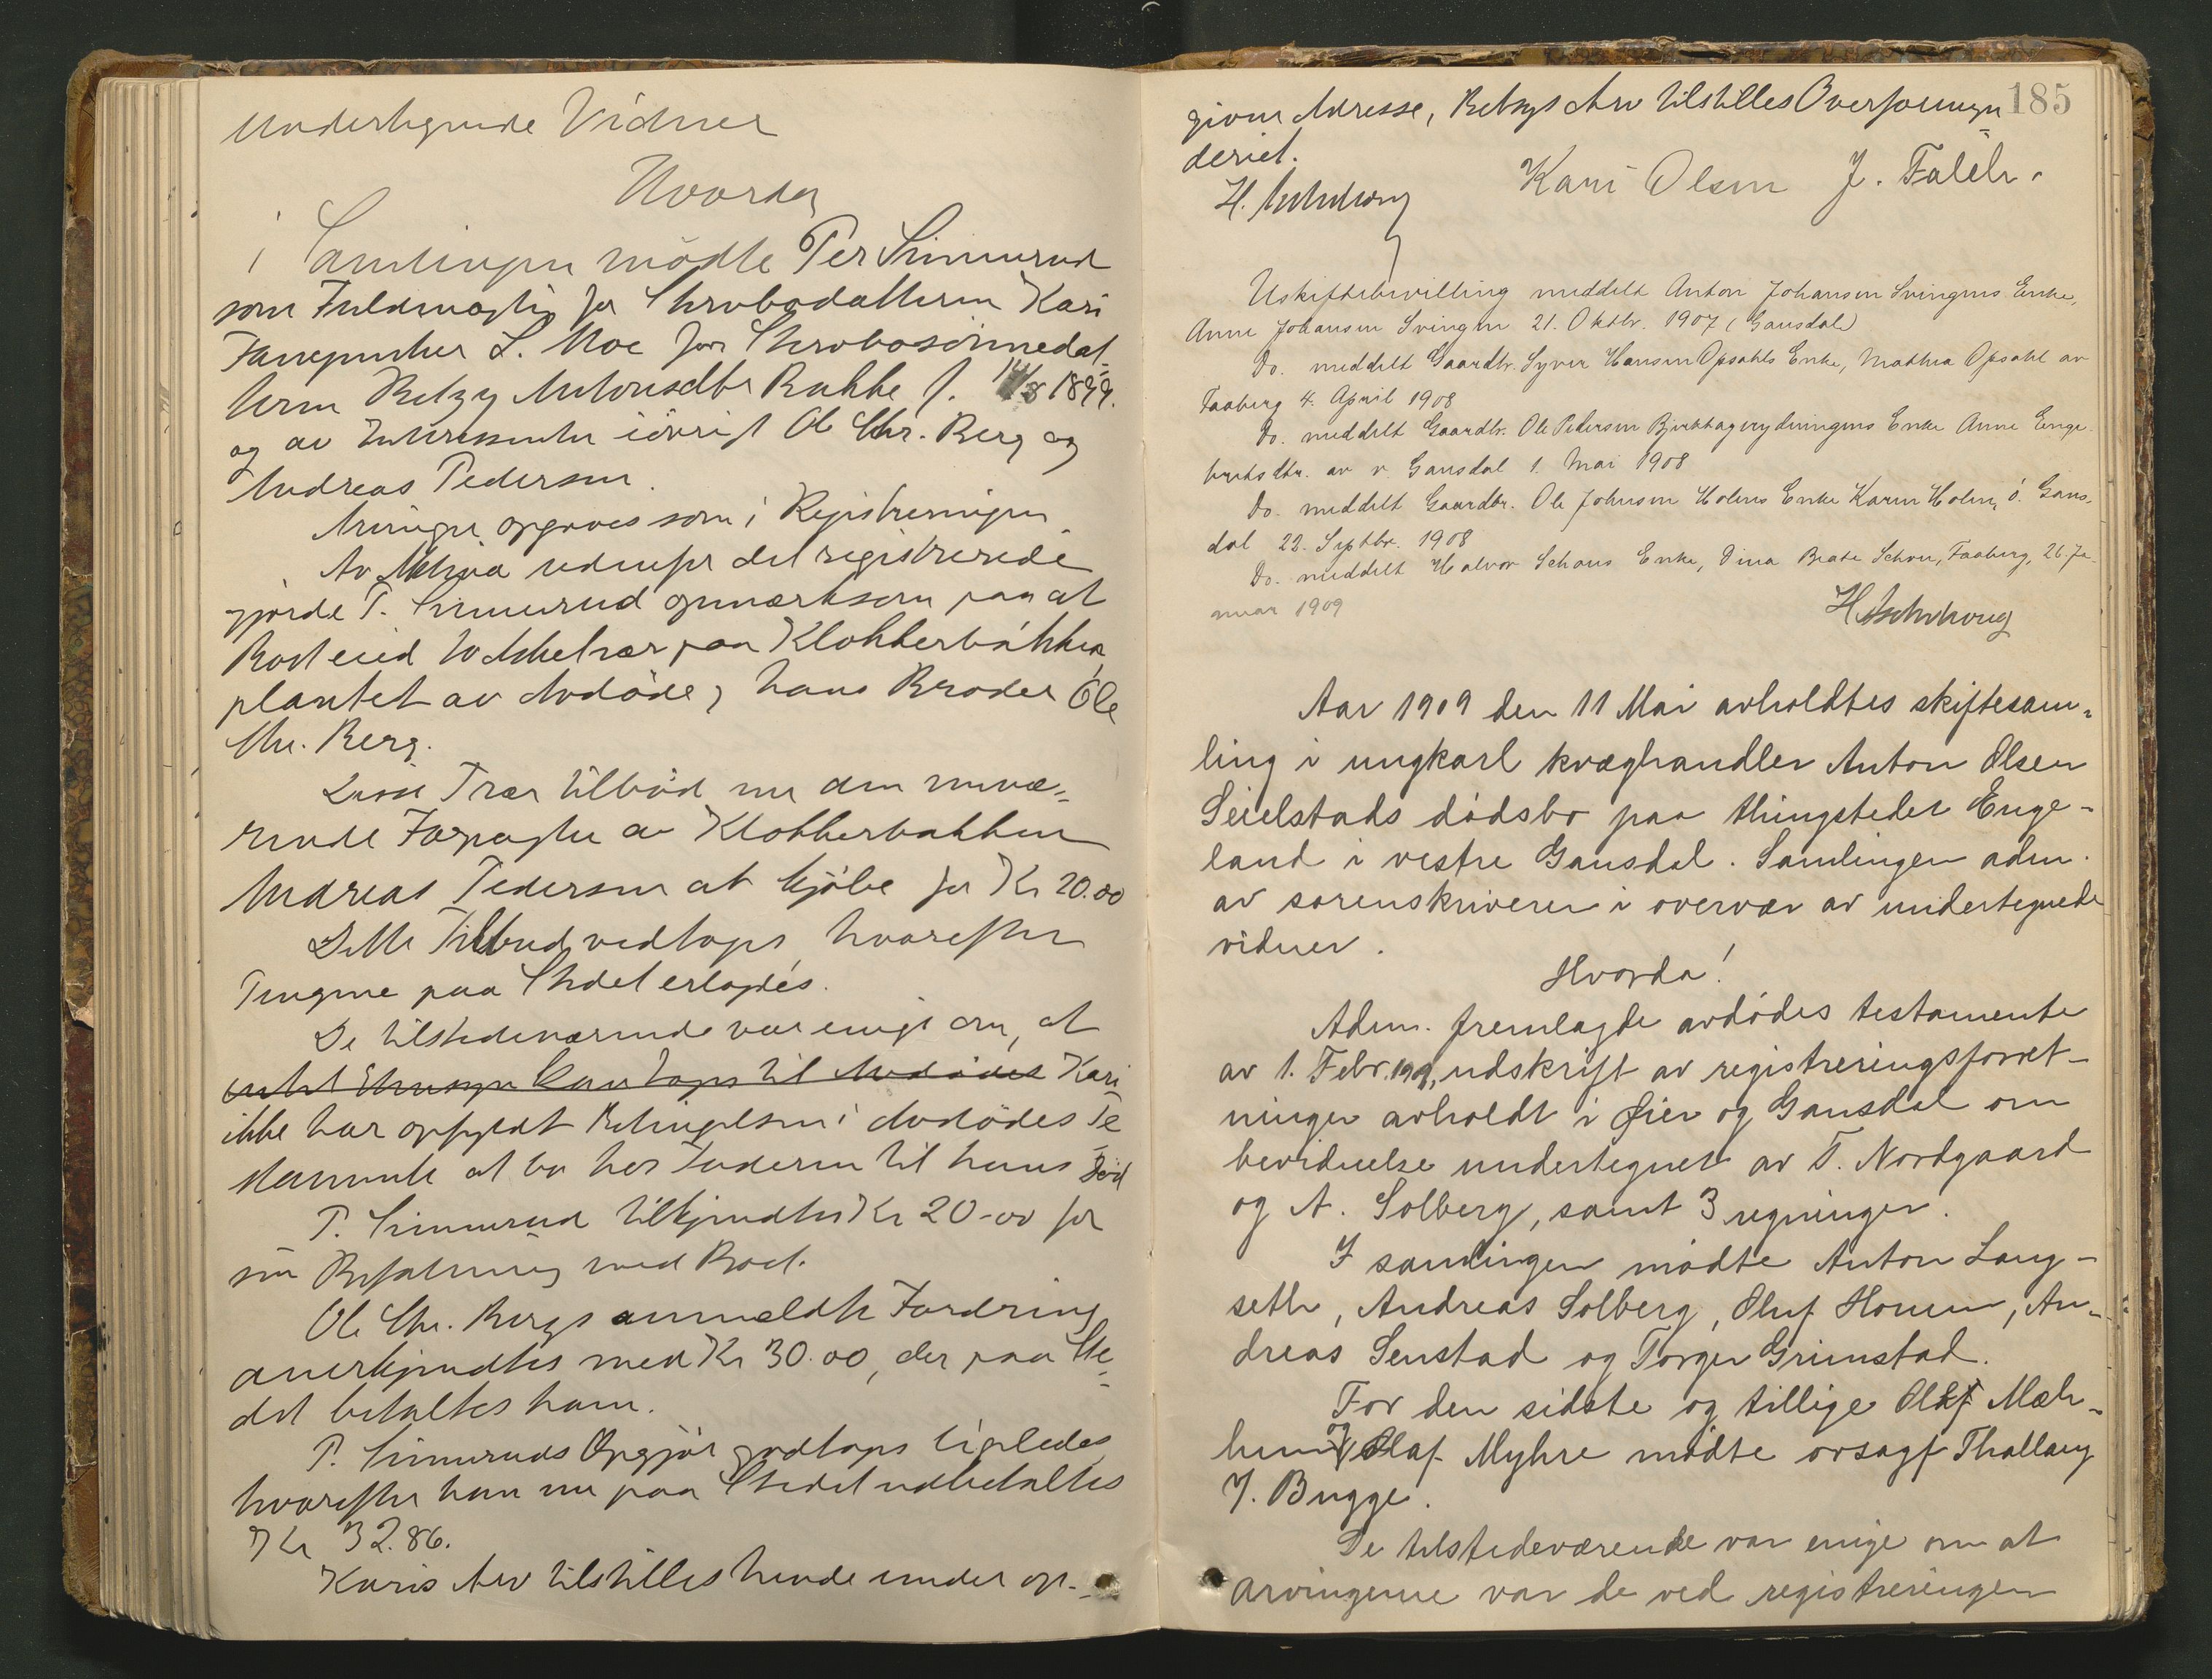 undertegnede Vidner
Hvorda
i Samlingen mödte Per Simmerud
som Fuldmægtig for Skrobodatteren Kari
L. Moe for Skrobosönnedat-
teren Betzy Antonsdtr Bakke f. 14/8 1899.
og av Interessenter iövrigt Ole Chr. Berg og
Andreas Pedersen.
Arvinger opgaves som i Registreringen
Av Aktiva udenfor det registrerede
gjorde P. Simmerud opmærksom paa at
Boet eied to Æbeltrær paa Klokkerbakken,
plantet av Avdöde, hans Broder Ole
Chr. Berg.
Disse Trær tilböd nu den nuvæ-
rende Forpagter av Klokkerbakken
Andreas Pedersen at kjöbe for Kr 20.00
Dette Tilbud vedtoges, hvorefter
Pengene paa Stedet erlagdes.
De tilstedeværende var enige om, at
intet Hensyn kan tages til Avdödes Kari
ikke har opfyldt Betingelsen i Avdödes Te
stamente at bo hos Faderen til hans Död
P. Simmerud tilkjendtes Kr 20-00 for
sin Befatning med Boet.
Ole Chr. Bergs anmeldte Fordring
anerkjendtes med Kr 30.00, der paa Ste-
det betaltes ham.
P. Simmeruds Opgjör godtoges ligeledes
hvorefter han nu paa Stedet udbetaltes
Kr 32.86.
Karis Arv tilstilles hende under op-
185
given Adresse, Betzys Arv tilstilles Overformyn
deriet.
H. Aschehoug
Kari Olsen J. Falch.
Uskiftebevilling meddelt Anton Johansen Svingens Enke,
Anne Johansen Svingen 21. Oktbr. 1907 (Gausdal)
Do. meddelt Gaardbr. Syver Hansen Opsahls Enke, Mathea Opsahl av
Faaberg 4. April 1908
Do. meddelt Gaardbr. Ole Pedersen Enke Anne Enge-
bretsdtr. av v. Gausdal 1. Mai 1908
Do. meddelt Gaardbr. Ole Johnsen Holens Enke Karen Holen, ö. Gaus-
dal 22. Septbr. 1908
Do. meddelt Halvor Schous Enke, Dina Beate Schou, Faaberg, 26. Ja-
nuar 1909
H Aschehoug
Aar 1909 den 11 Mai avholdtes skiftesam-
ling i ungkarl kvæghandler Anton Olsen
Seielstads dødsbo paa thingstedet Enge-
land i vestre Gausdal. Samlingen adm.
av sorenskriveren i overvær av undertegnede
vidner.
Hvorda!
Adm. fremlagde avdødes testamente
av 1. Febr. 1909, udskrift av registreringsforret-
ninger avholdt i Øier og Gausdal om
bevidnelse undertegnet av T. Nordgaard
og A. Solberg, samt 3 regninger.
I samlingen mødte Anton Lang-
seth, Andreas Solberg, Oluf Homen, An-
dreas Senstad og Torger Grimstad.
For den sidste og tillige Olaf Mæh-
lum og Olaf Myhre mødte orsagf Thallaug
J. Bugge.
De tilstedeværende var enige om at
arvingerne var de ved registreringen